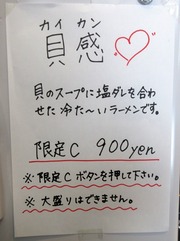 カイ カン
貝感
貝のスープに塩ダレを合わ
せた冷た〜いラーメンです。
限定C 900yen
※限定Cボタンを押して下さい。
※大盛りはできません。